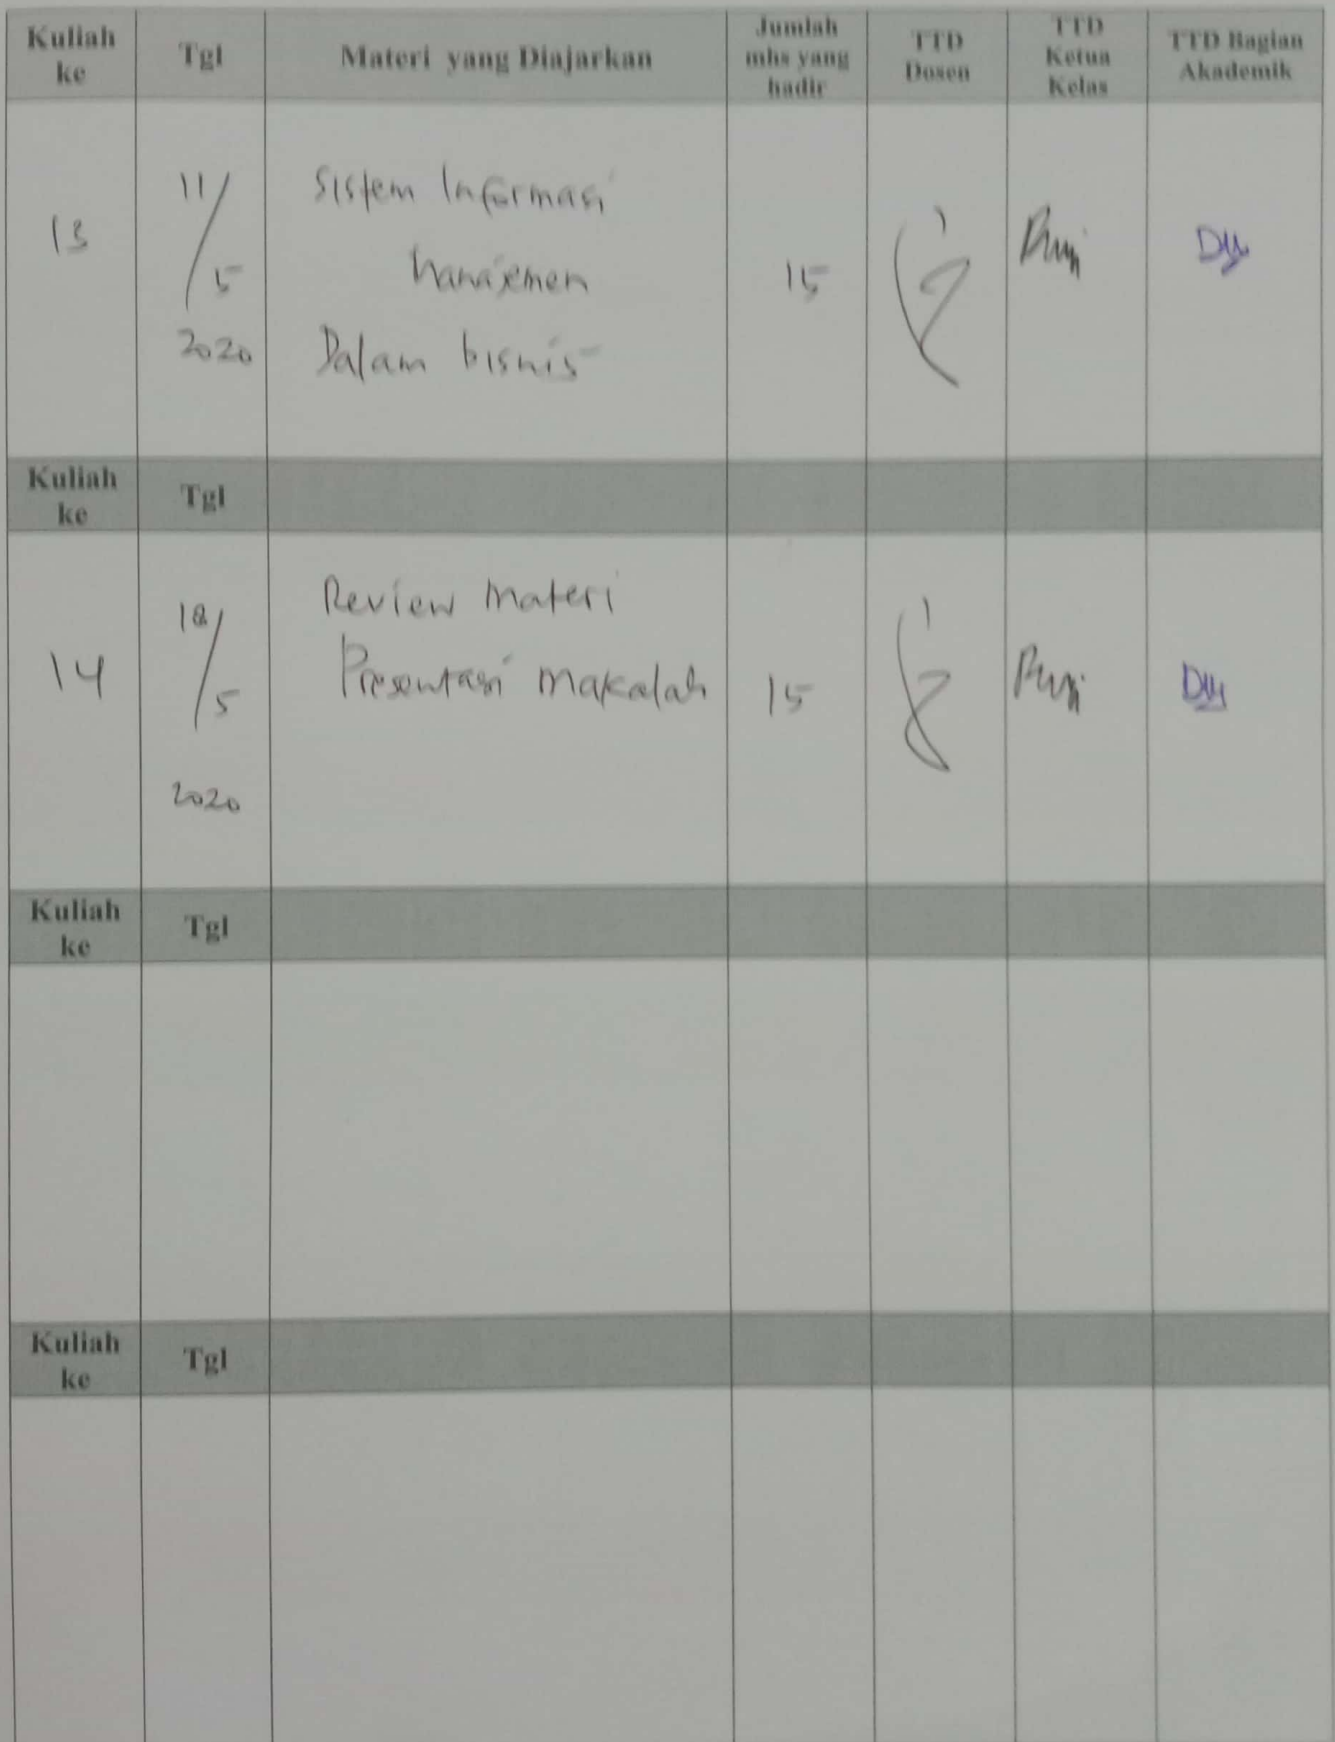 Kuliah ke Tgl Materi yang Diajarkan Jumlah mhs yang hadir TTD Dosen TTD Ketua Kelas TTD Bagian Akademik
13 11/5 2020 Sistem Informasi
Manajemen 15
Dalam bisnis
Kuliah ke Tgl
14 18/5 2020 Review Materi
Presentasi makalah 15
Kuliah ke Tgl
Kuliah ke Tgl